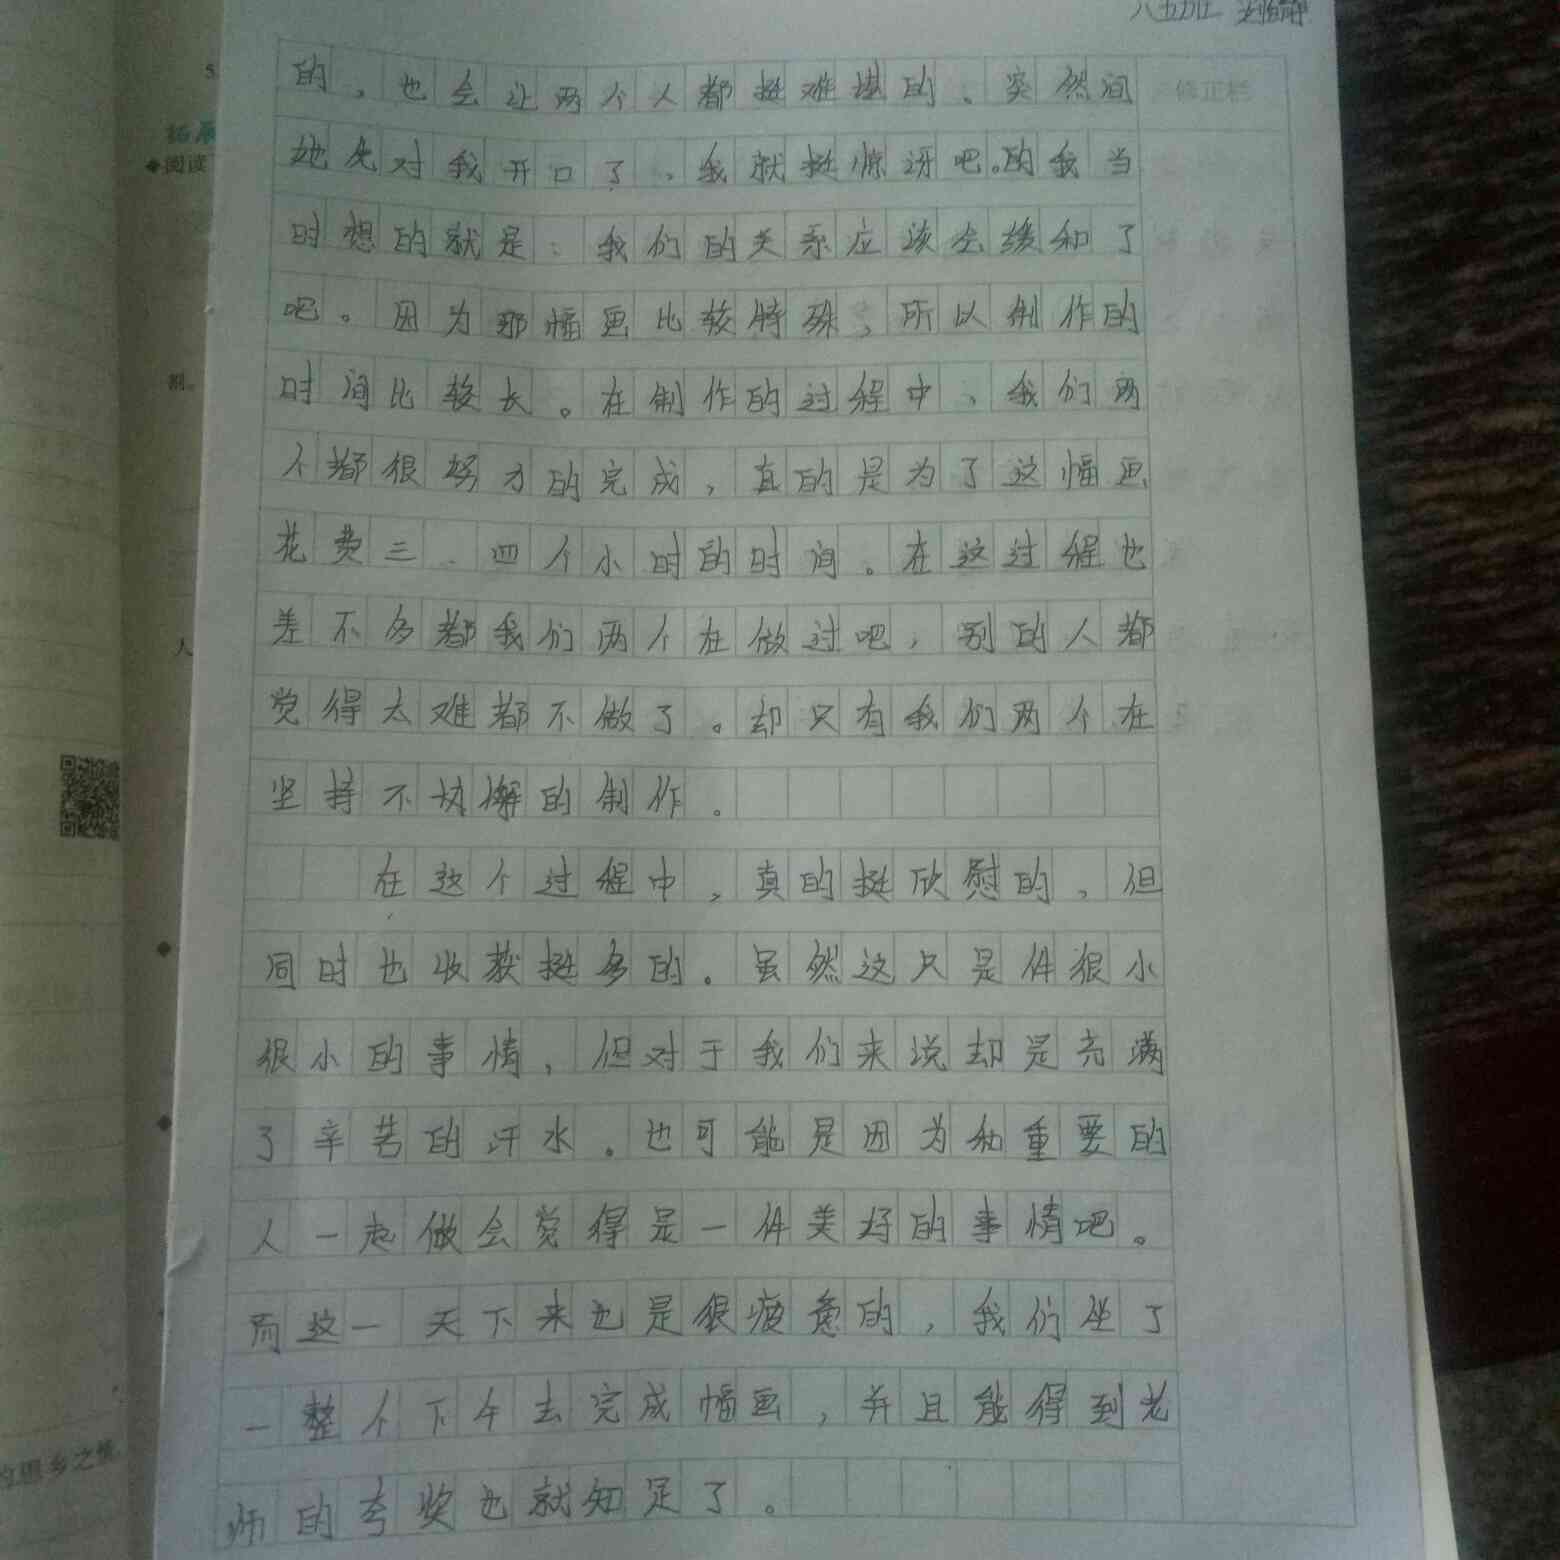 八五班
的，也会让两个人都挺难堪的。突然间
修正栏
她先对我开口了，我就挺惊讶吧。的我当
时想的就是：我们的关系应该会缓和了
吧。因为那幅画比较特殊，所以制作的
时间比较长。在制作的过程中，我们两
个都很努力的完成，真的是为了这幅画
花费三、四个小时的时间。在这过程也
差不多都我们两个在做过吧，别的人都
觉得太难都不做了。却只有我们两个在
坚持不懈的制作。
在这个过程中，真的挺欣慰的，但
同时也收获挺多的。虽然这只是件很小
很小的事情，但对于我们来说却是充满
了辛苦的汗水。也可能是因为和重要的
人一起做会觉得是一件美好的事情吧。
而这一天下来也是很疲惫的，我们坐了
一整个下午去完成幅画，并且能得到老
师的夸奖也就知足了。
5.
拓展
◆阅读
割。
人
的思乡之情